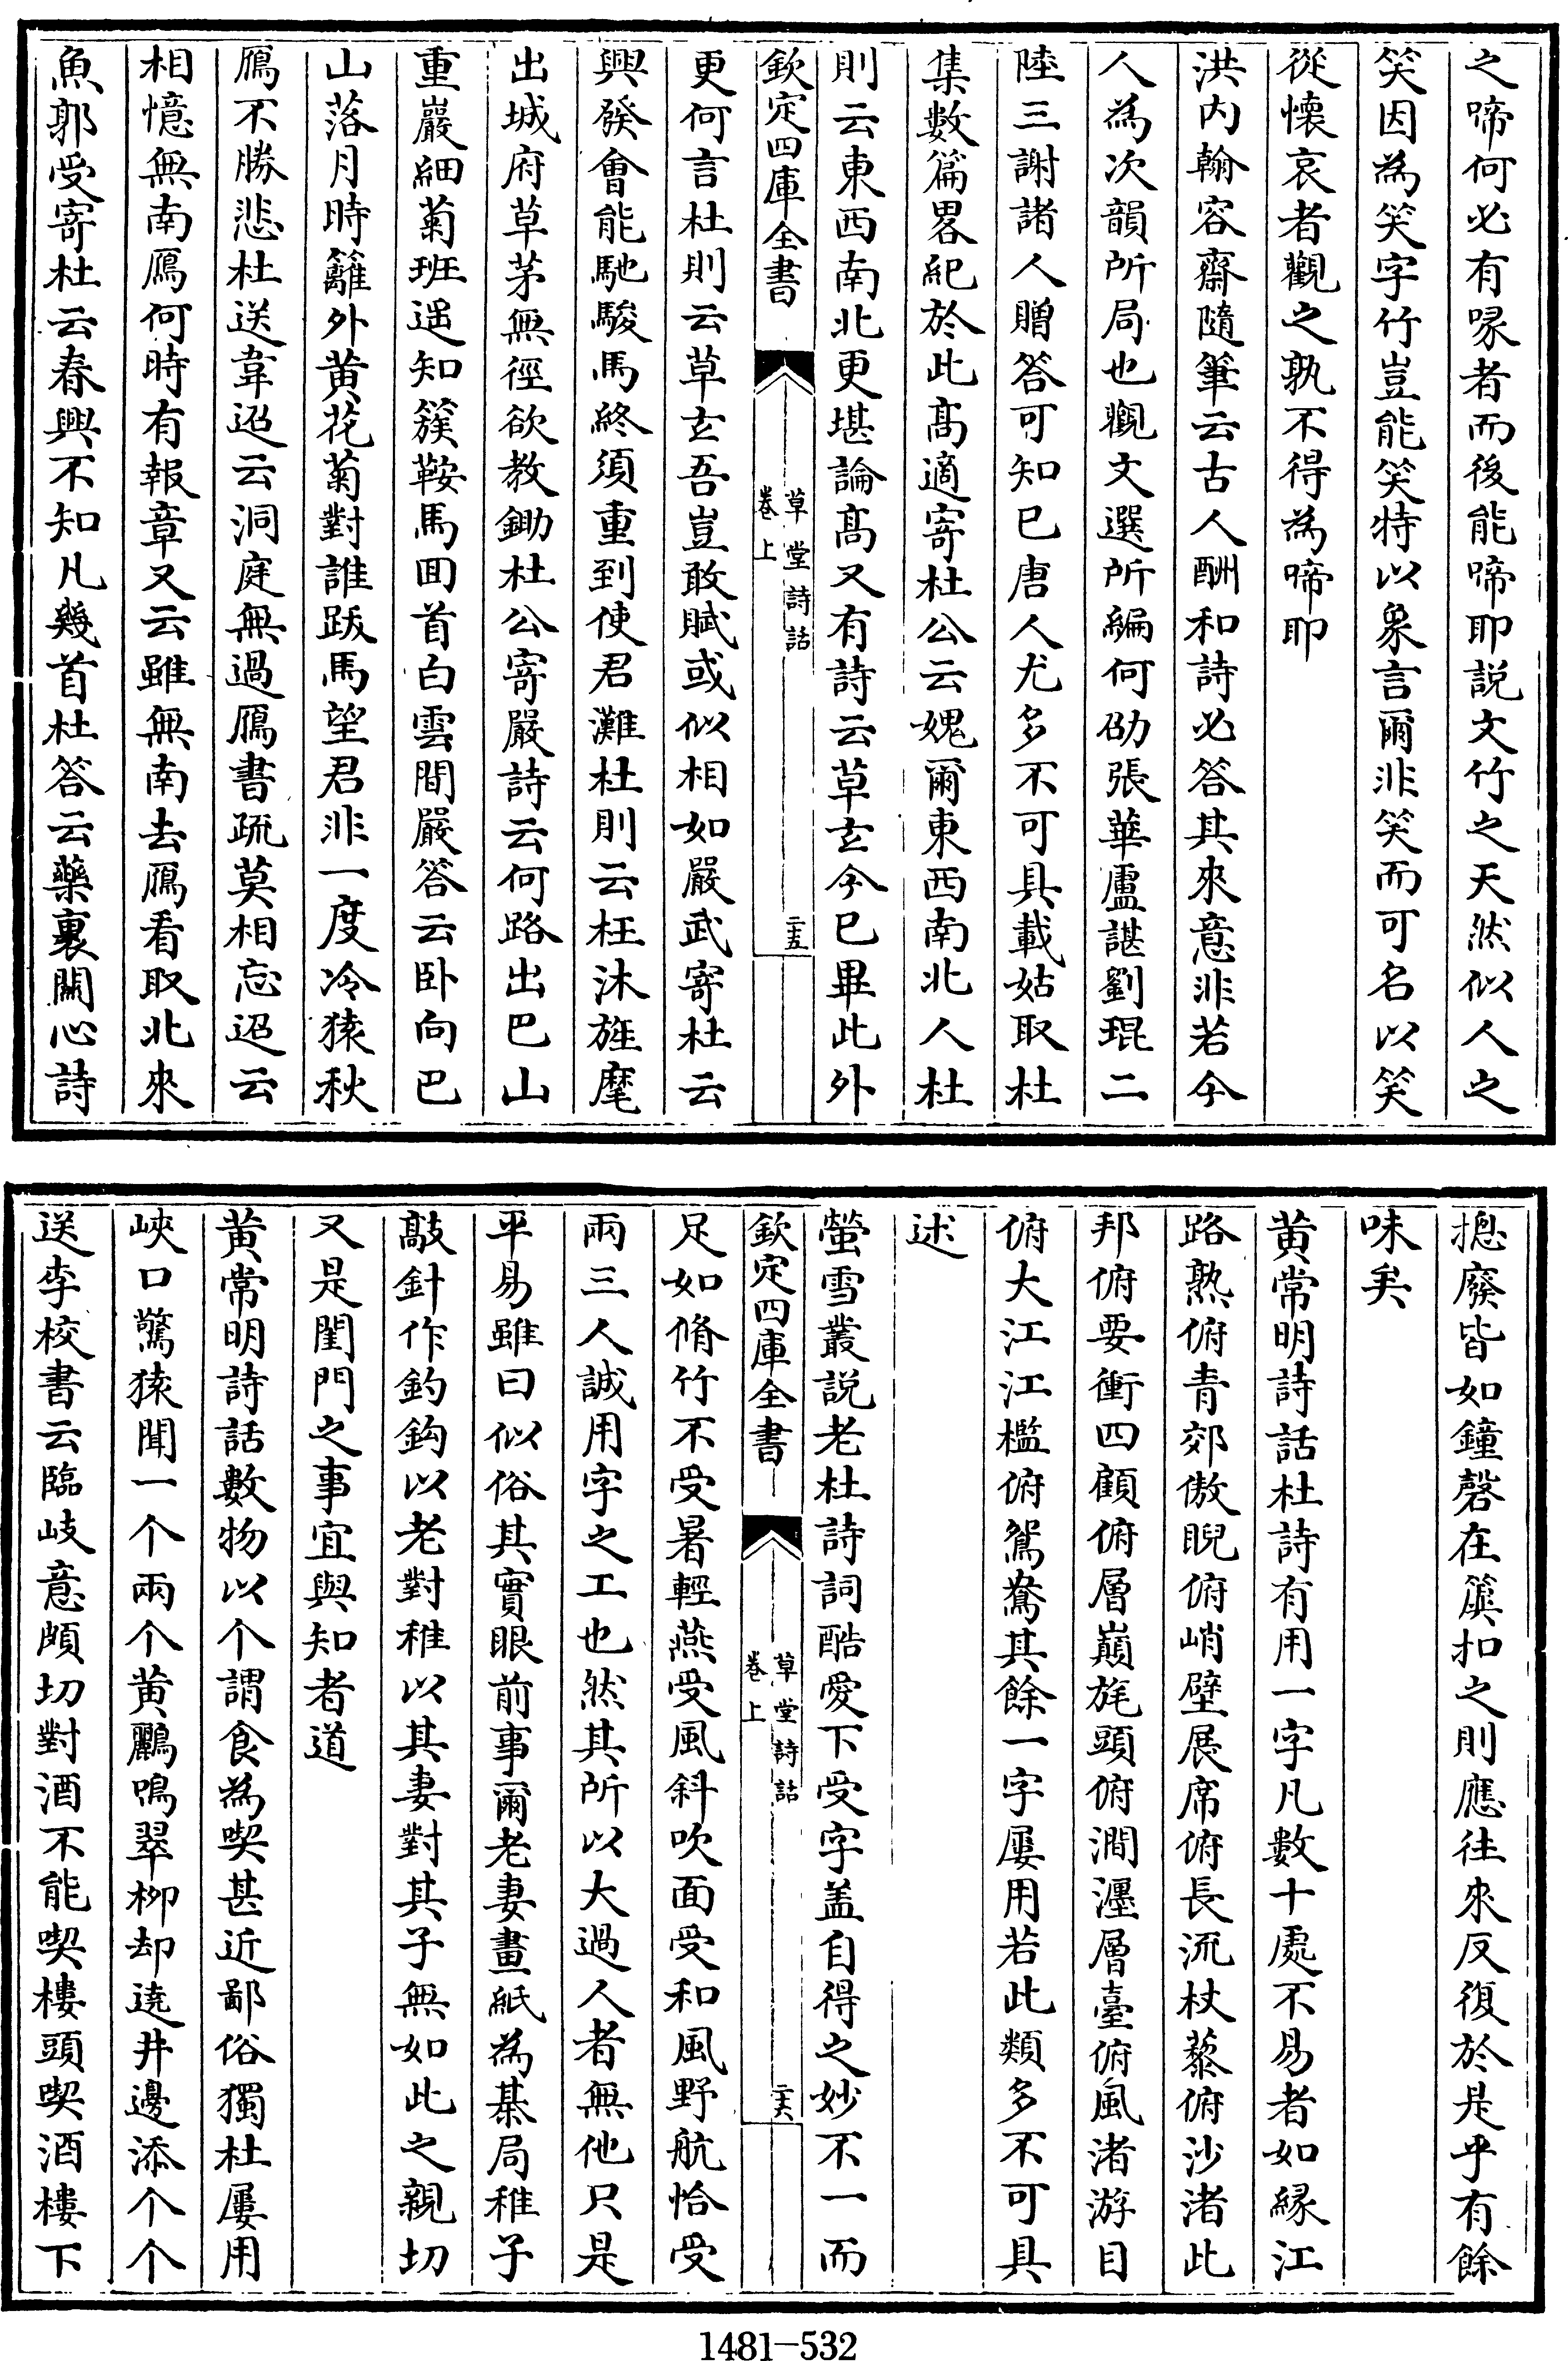 之啼何必有喙者而後能啼耶説文竹之天然似人之
笑因為笑字竹豈能笑特以象言爾非笑而可名以笑
從懐哀者觀之孰不得為啼耶
洪内翰容齋隨筆云古人酬和詩必答其來意非若今
人為次韻所局也觀文選所編何劭張華盧諶劉琨二
陸三謝諸人贈答可知已唐人尤多不可具載姑取杜
集數篇畧紀於此髙適寄杜公云媿爾東西南北人杜
則云東西南北更堪論髙又有詩云草玄今已畢此外
欽定四庫全書
草堂詩話
卷上
二五
更何言杜則云草玄吾豈敢賦或似相如嚴武寄杜云
興發會能馳駿馬終須重到使君灘杜則云枉沐旌麾
出城府草茅無徑欲教鋤杜公寄嚴詩云何路出巴山
重巖細菊班遥知簇鞍馬回首白雲間嚴答云卧向巴
山落月時籬外黄花菊對誰跋馬望君非一度冷猿秋
鴈不勝悲杜送韋迢云洞庭無過鴈書疏莫相忘迢云
相憶無南鴈何時有報章又云雖無南去鴈看取北來
魚郭受寄杜云春興不知凡幾首杜答云藥裹闗心詩
摠廢皆如鐘磬在簴扣之則應往來反復於是乎有餘
味矣
黄常明詩話杜詩有用一字凡數十處不易者如縁江
路熟俯青郊傲睨俯峭壁展席俯長流杖藜俯沙渚此
邦俯要衝四顧俯層巔旄頭俯澗瀍層臺俯風渚游目
俯大江江檻俯鴛鴦其餘一字屢用若此類多不可具
述
螢雪叢説老杜詩詞酷愛下受字盖自得之妙不一而
欽定四庫全書
草堂詩話
卷上
二六
足如脩竹不受暑輕燕受風斜吹面受和風野航恰受
兩三人誠用字之工也然其所以大過人者無他只是
平易雖曰似俗其實眼前事爾老妻畫紙為棊局稚子
敲針作釣鈎以老對稚以其妻對其子無如此之親切
又是閨門之事宜與知者道
黄常明詩話數物以个謂食為喫甚近鄙俗獨杜屢用
峽口驚猿聞一个兩个黄鸝鳴翠栁却遶井邊添个个
送李校書云臨岐意頗切對酒不能喫樓頭喫酒樓下
1481-532